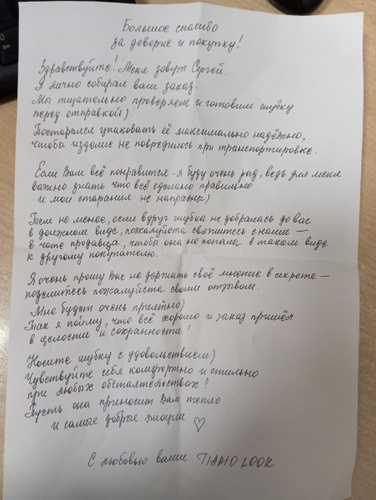 Большое спасибо
за доверие и покупку!
Здравствуйте! Меня зовут Сергей.
Я лично собирал ваш заказ.
Мы тщательно проверяем и готовим шубку
перед отправкой)
Постарался упаковать её максимально надёжно,
чтобы изделие не повредилось при транспортировке.
Если Вам всё понравится - я буду очень рад, ведь для меня
важно знать что всё сделано правильно
и мои старания не напрасны)
Тем не менее, если вдруг шубка не добралась до вас
в должном виде, пожалуйста свяжитесь с нами –
в чате продавца, чтобы она не попала в таком виде
к другому покупателю.
Я очень прошу Вас не держать своё мнение в секрете –
поделитесь пожалуйста своим отзывом.
Мне будет очень приятно)
Так я пойму, что всё хорошо и заказ пришёл
в целости и сохранности!
Носите шубку с удовольствием)
Чувствуйте себя комфортно и стильно
при любых обстоятельствах!
Пусть она приносит Вам тепло
и самые добрые эмоции ♡
С любовью ваши LOOK